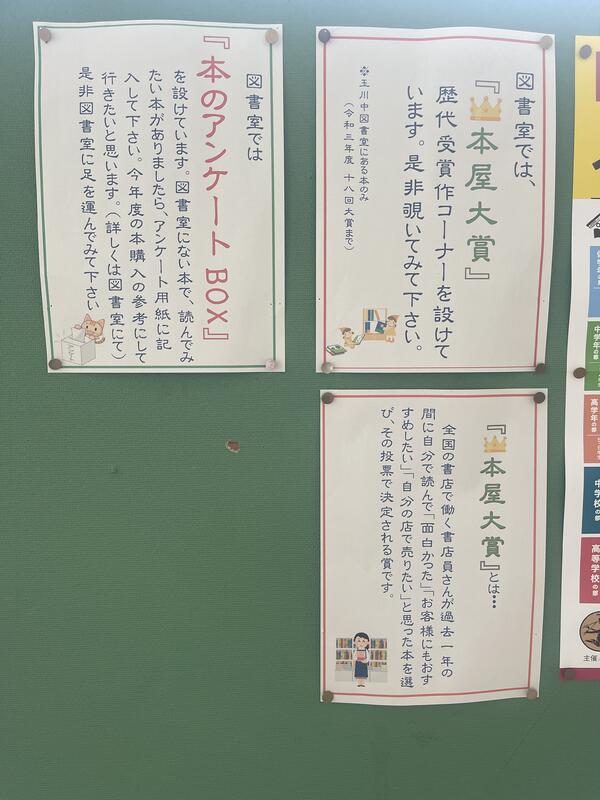 図書室では、
『本屋大賞』
歴代受賞作コーナーを設けて
います。是非覗いてみて下さい。
※玉川中図書室にある本のみ
(令和三年度 十八回大賞まで)
図書室では
『本のアンケートBOX』
を設けています。図書室にない本で、読んでみ
たい本がありましたら、アンケート用紙に記
入して下さい。今年度の本購入の参考にして
行きたいと思います。(詳しくは図書室にて)
是非図書室に足を運んでみて下さい
『本屋大賞』とは…
全国の書店で働く書店員さんが過去一年の
間に自分で読んで「面白かった」「お客様にもおす
すめしたい」「自分の店で売りたい」と思った本を選
び、その投票で決定される賞です。
中学年の部
高学年の部
中学校の部
高等学校の部
主催